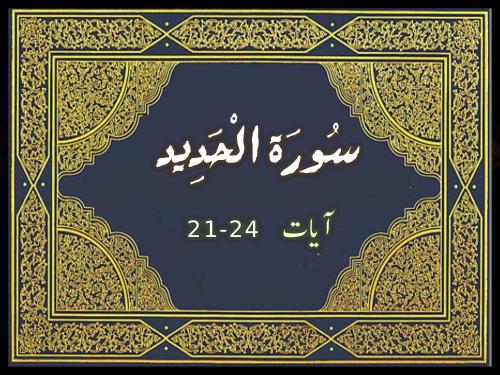 سُورَة الْحَدِيد
آیات 21-24